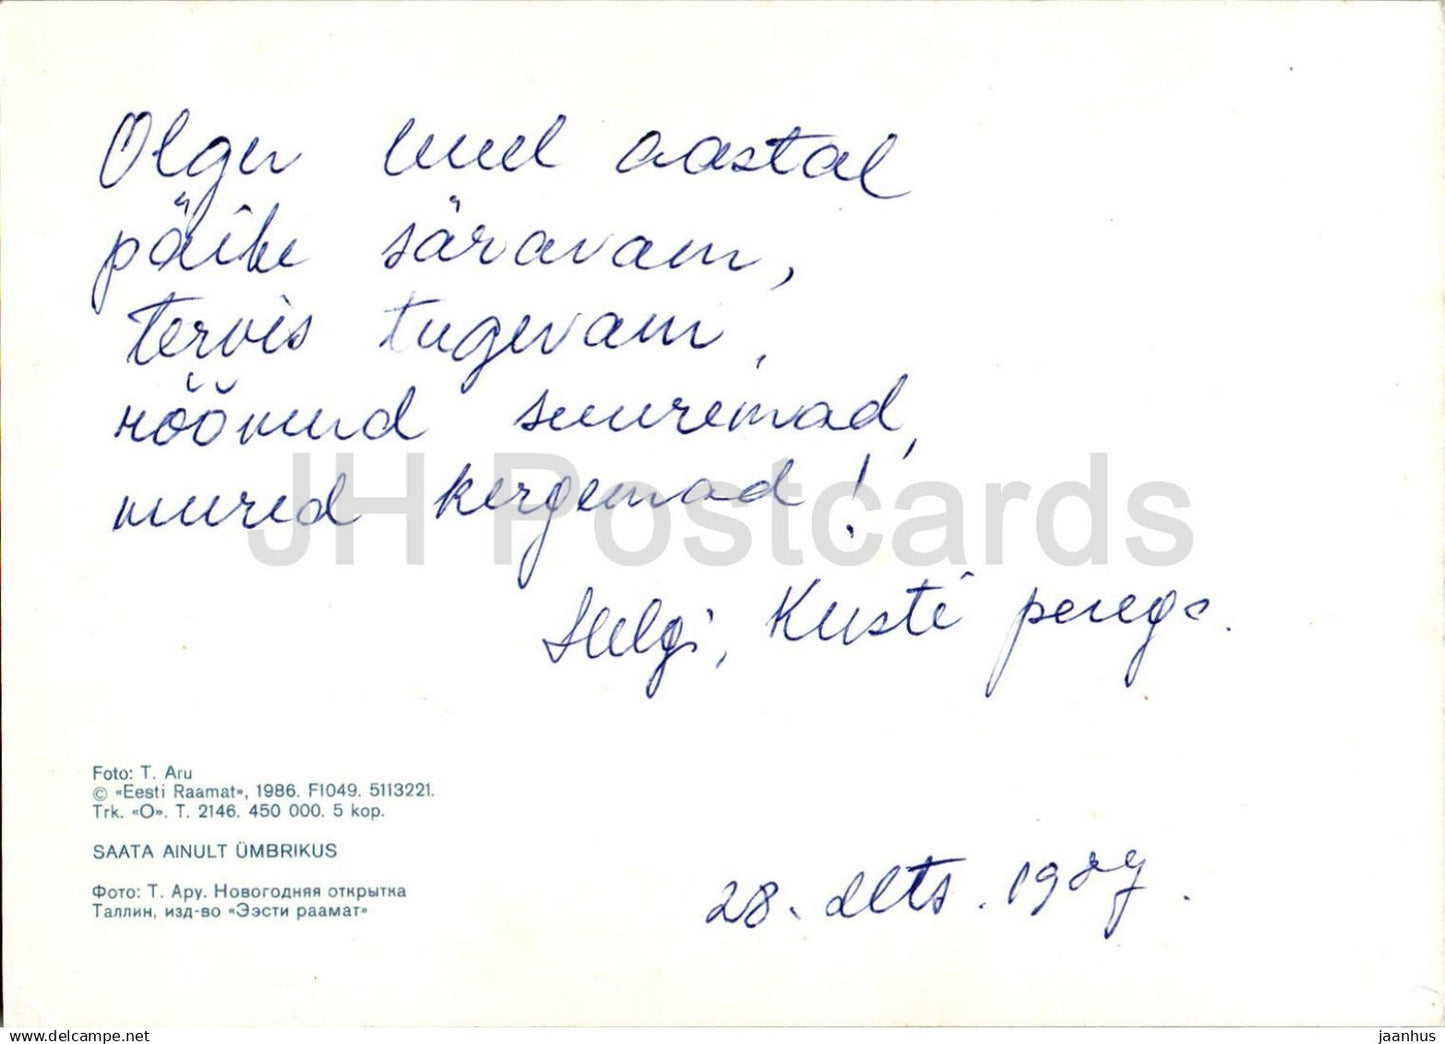 Olgu uuel aastal
päike säravam,
tervis tugevam,
rõõmud suuremad,
mured kergemad!
Helgi, Kusti perega.
JH Postcards
Foto: T. Aru
© «Eesti Raamat», 1986. F1049. 5113221.
Trk. «O». T. 2146. 450 000. 5 kop.
SAATA AINULT ÜMBRIKUS
Фото: Т. Ару. Новогодняя открытка
Таллин, изд-во «Ээсти раамат»
28. dets. 1989.
www.delcampe.net
jaanhus